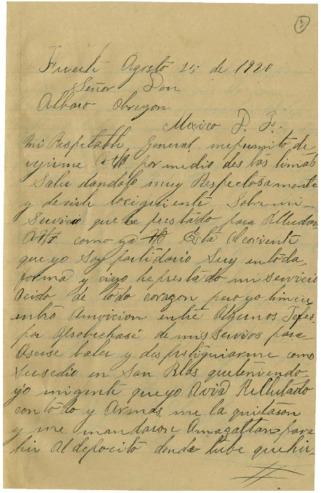 1
Fuerte Agosto 25 de 1920
Señor Don
Albaro Obregon
Mexico D. F.
Mi Respetable General me permito de
rijirme a Ud por medio des tas lineas
Salu dandolo muy Respectosamente
y desirle lo ciguiente Sobre mi
Servicio que he prestado para Alludar
A Ud como ya Ud Está
que yo Soy partidario Suyo en toda
forma y siego he prestado mi servicio
de todo corazon pero yo
entro Amvicion entre Algunos Jefes
por Aprobecharse de mis Servios para
Acerse baler y desprestiguiarme como
Susedio en San Blas que teniendo
yo mi gente que yo Avia Rellutado
con todo y Armas me la quitaron
y me mandaron Amazatlan para
hir Al deposito donde tube que hir